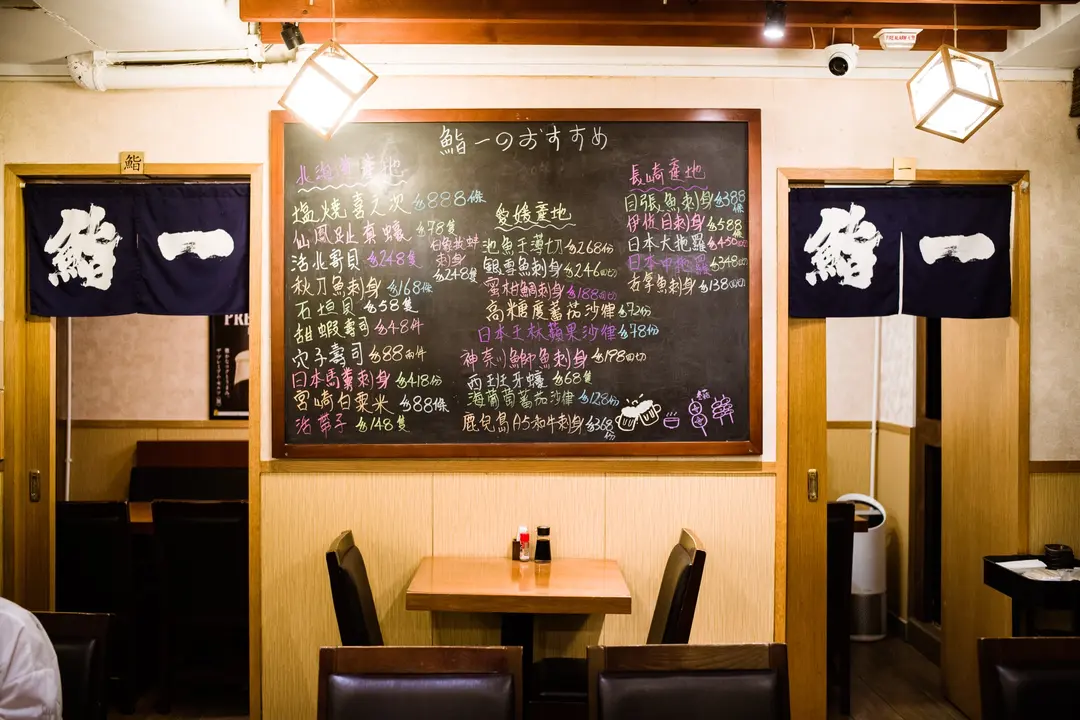 鮨一のおすすめ
北海道産地
塩燒喜之次 $888條
仙鳳趾真蠔 $78隻
活北寄貝 $248隻
秋刀魚刺身 $168條
石垣貝 $58隻
甜蝦壽司 $48件
穴子壽司 $88兩件
日本馬糞刺身 $418份
宮崎白粟米 $88條
活帶子 $148隻
刺身
$248隻
愛媛產地
池魚王薄切 $268份
銀雪魚刺身 $246
蜜柑鯛刺身 $188
高糖度蕃茄沙律 $72份
日本王林蘋果沙律 $78份
神奈川鰤魚刺身 $198
西班牙蠔 $68隻
海葡萄蕃茄沙律 $128份
鹿兒島A5和牛刺身 $368份
長崎產地
目張魚刺身 $388條
伊佐目刺身 $588條
日本大拖羅 $450
日本中拖羅 $348
右擰魚刺身 $138
鮨
鮨一
一
鮨一
PRE